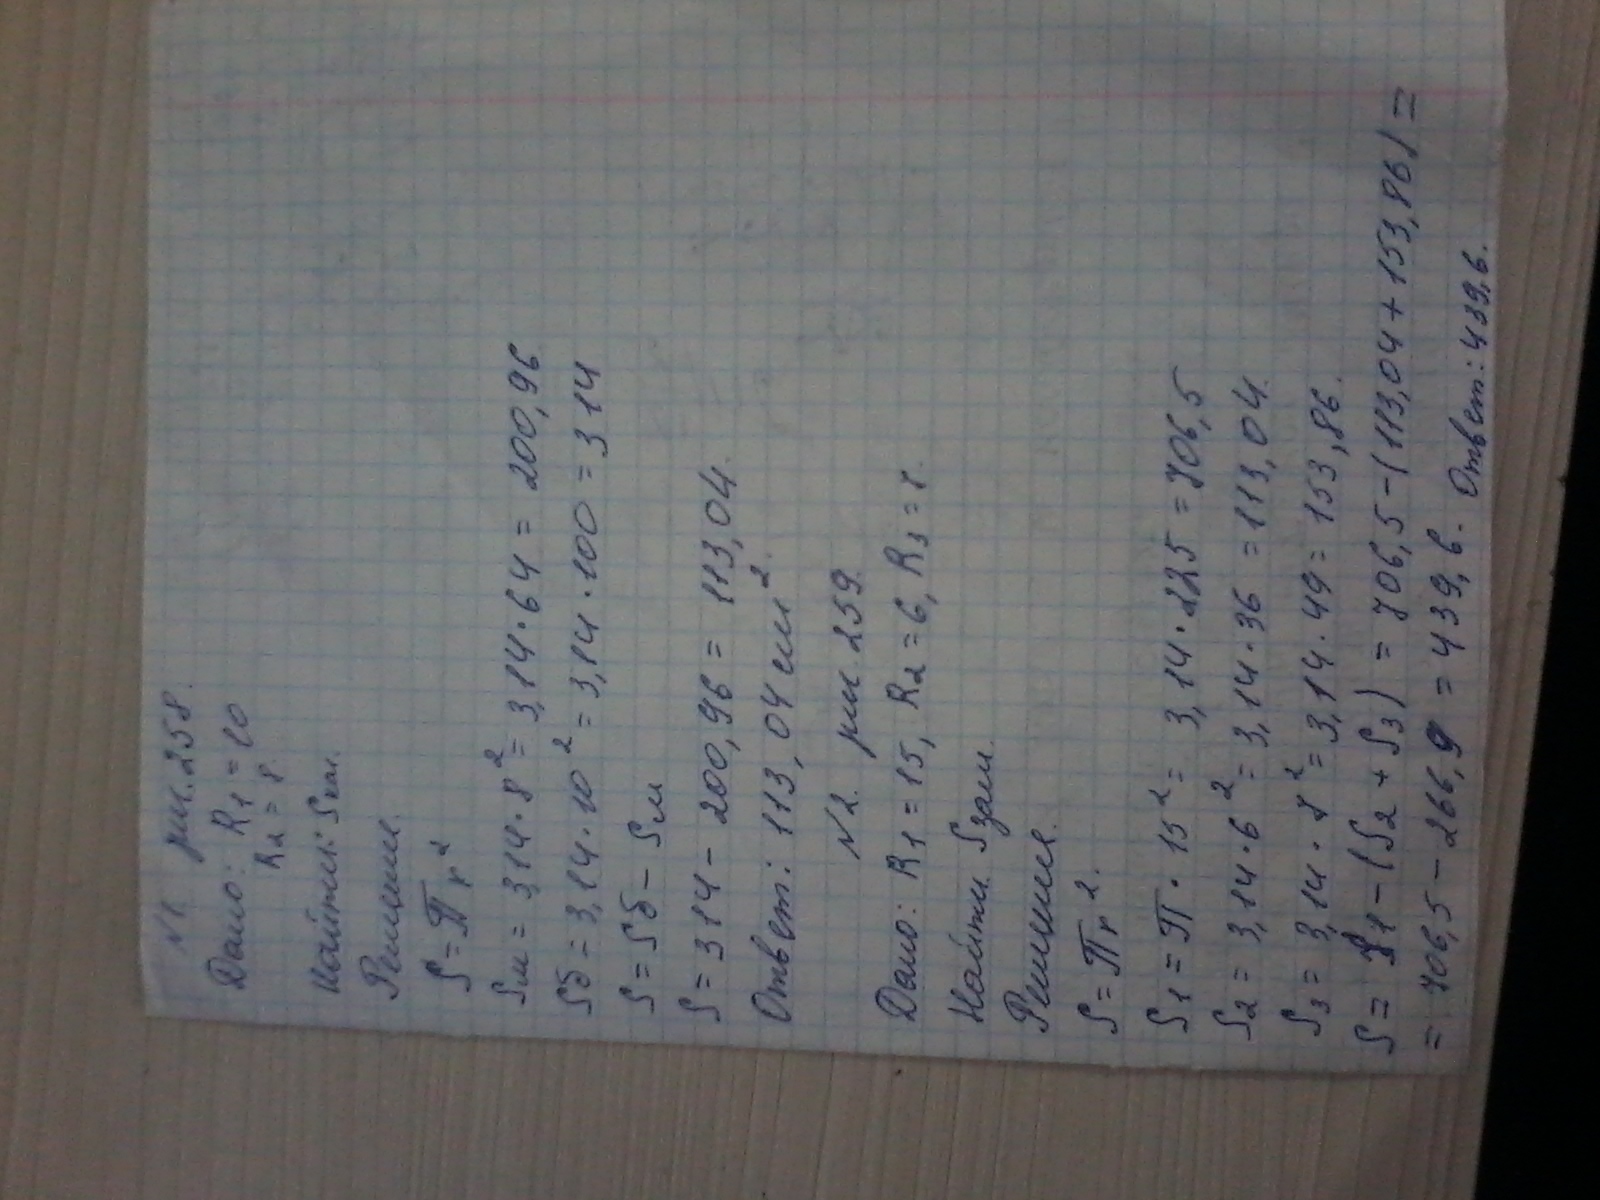 №1. рис. 258.
Дано: R1 = 10
R2 = 8.
Найти: Sкол.
Решение.
S = Пr²
Sм = 3,14 · 8² = 3,14 · 64 = 200,96
Sб = 3,14 · 10² = 3,14 · 100 = 314
S = Sб – Sм
S = 314 – 200,96 = 113,04.
Ответ: 113,04 см².
№2. рис. 259.
Дано: R1 = 15, R2 = 6, R3 = 7.
Найти Sзам.
Решение.
S = Пr².
S1 = П · 15² = 3,14 · 225 = 706,5
S2 = 3,14 · 6² = 3,14 · 36 = 113,04.
S3 = 3,14 · 7² = 3,14 · 49 = 153,86.
S = S1 – (S2 + S3) = 706,5 – (113,04 + 153,86) =
= 706,5 – 266,9 = 439,6. Ответ: 439,6.